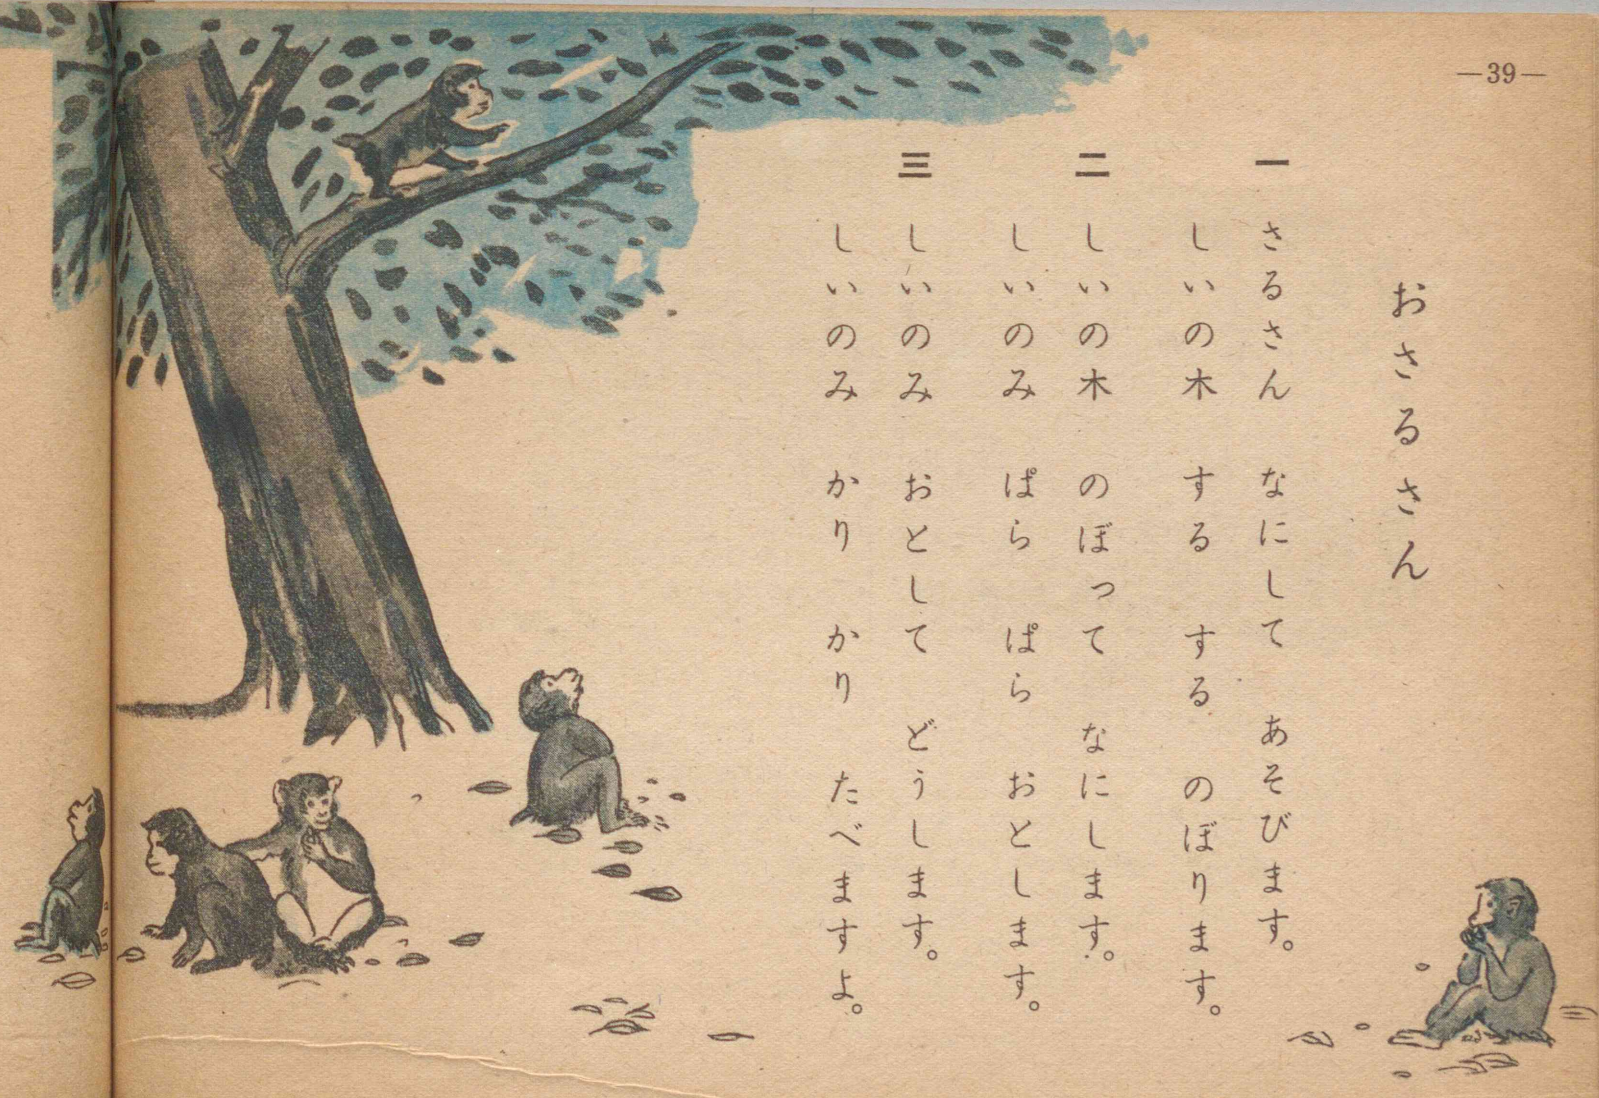 —39—
おさるさん
一 さるさん なにして あそびます。
しいの木 する する のぼります。
二 しいの木 のぼって なにします。
しいのみ ぱら ぱら おとします。
三 しいのみ おとして どうします。
しいのみ かり かり たべますよ。